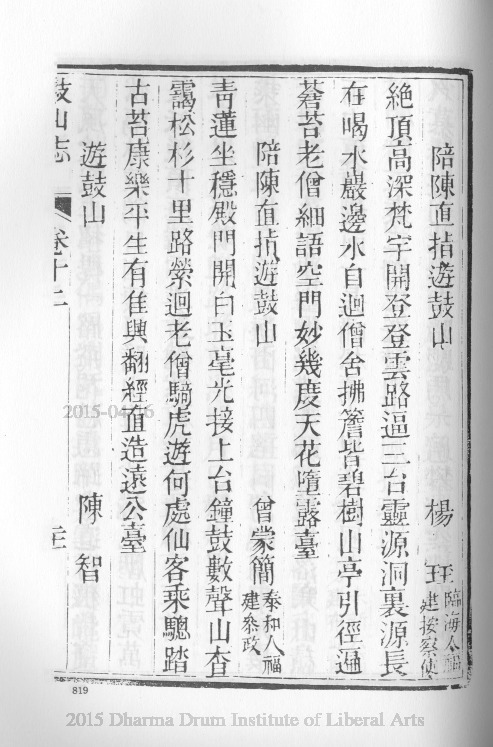 陪陳直指遊鼓山 楊 臨海人福建按察使
絶頂高深梵宇開登登雲路逼三台靈源洞裏源長
在喝水巖邊水自迴僧舍拂簷皆碧樹山亭引徑遍
蒼苔老僧細語空門妙幾度天花墮露臺
陪陳直指遊鼓山 曾蒙簡 泰和人福建參政
青蓮坐穩殿門開白玉毫光接上台鐘鼓數聲山杳
靄松杉十里路縈迴老僧騎虎遊何處仙客乘驄踏
古苔康樂平生有佳興翻經直造遠公臺
遊鼓山 陳智
鼓山志 卷十二
819
2015-04-16
2015 Dharma Drum Institute of Liberal Arts